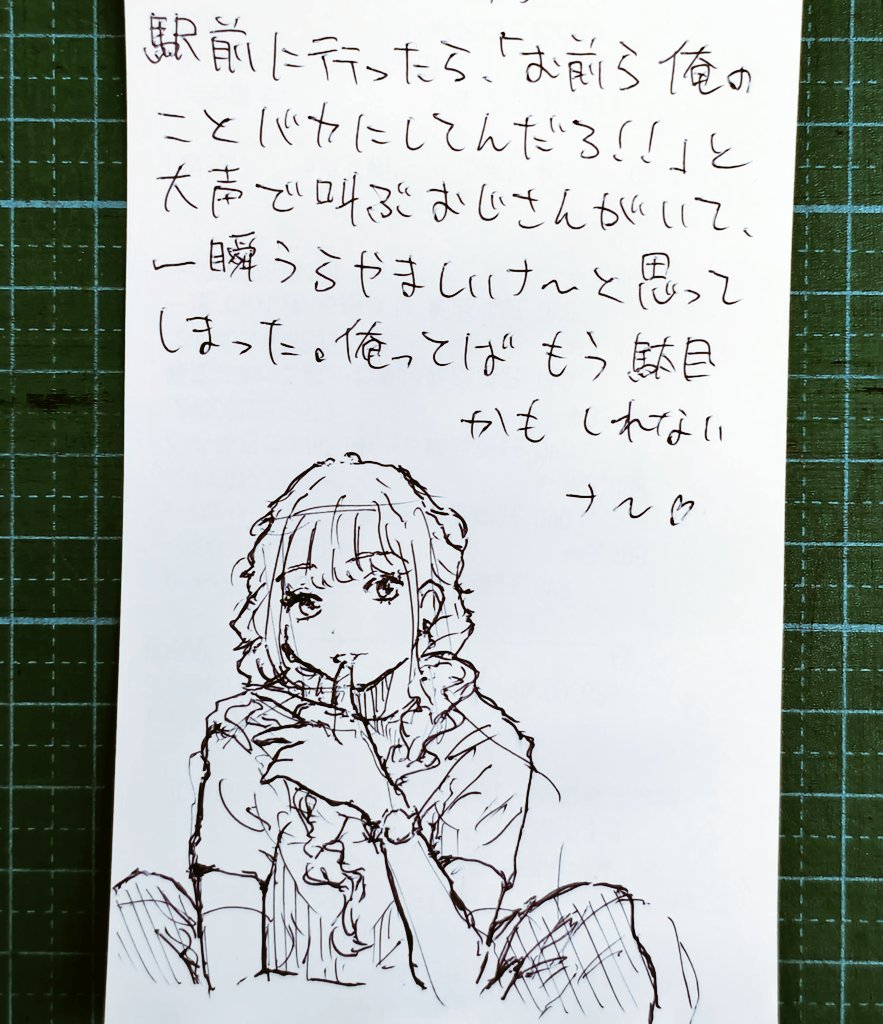 駅前に行ったら、「お前ら俺の
ことバカにしてんだろ!!」と
大声で叫ぶおじさんがいて、
一瞬うらやましいナ〜と思って
しまった。俺ってばもう駄目
かもしれない
ナ〜♡